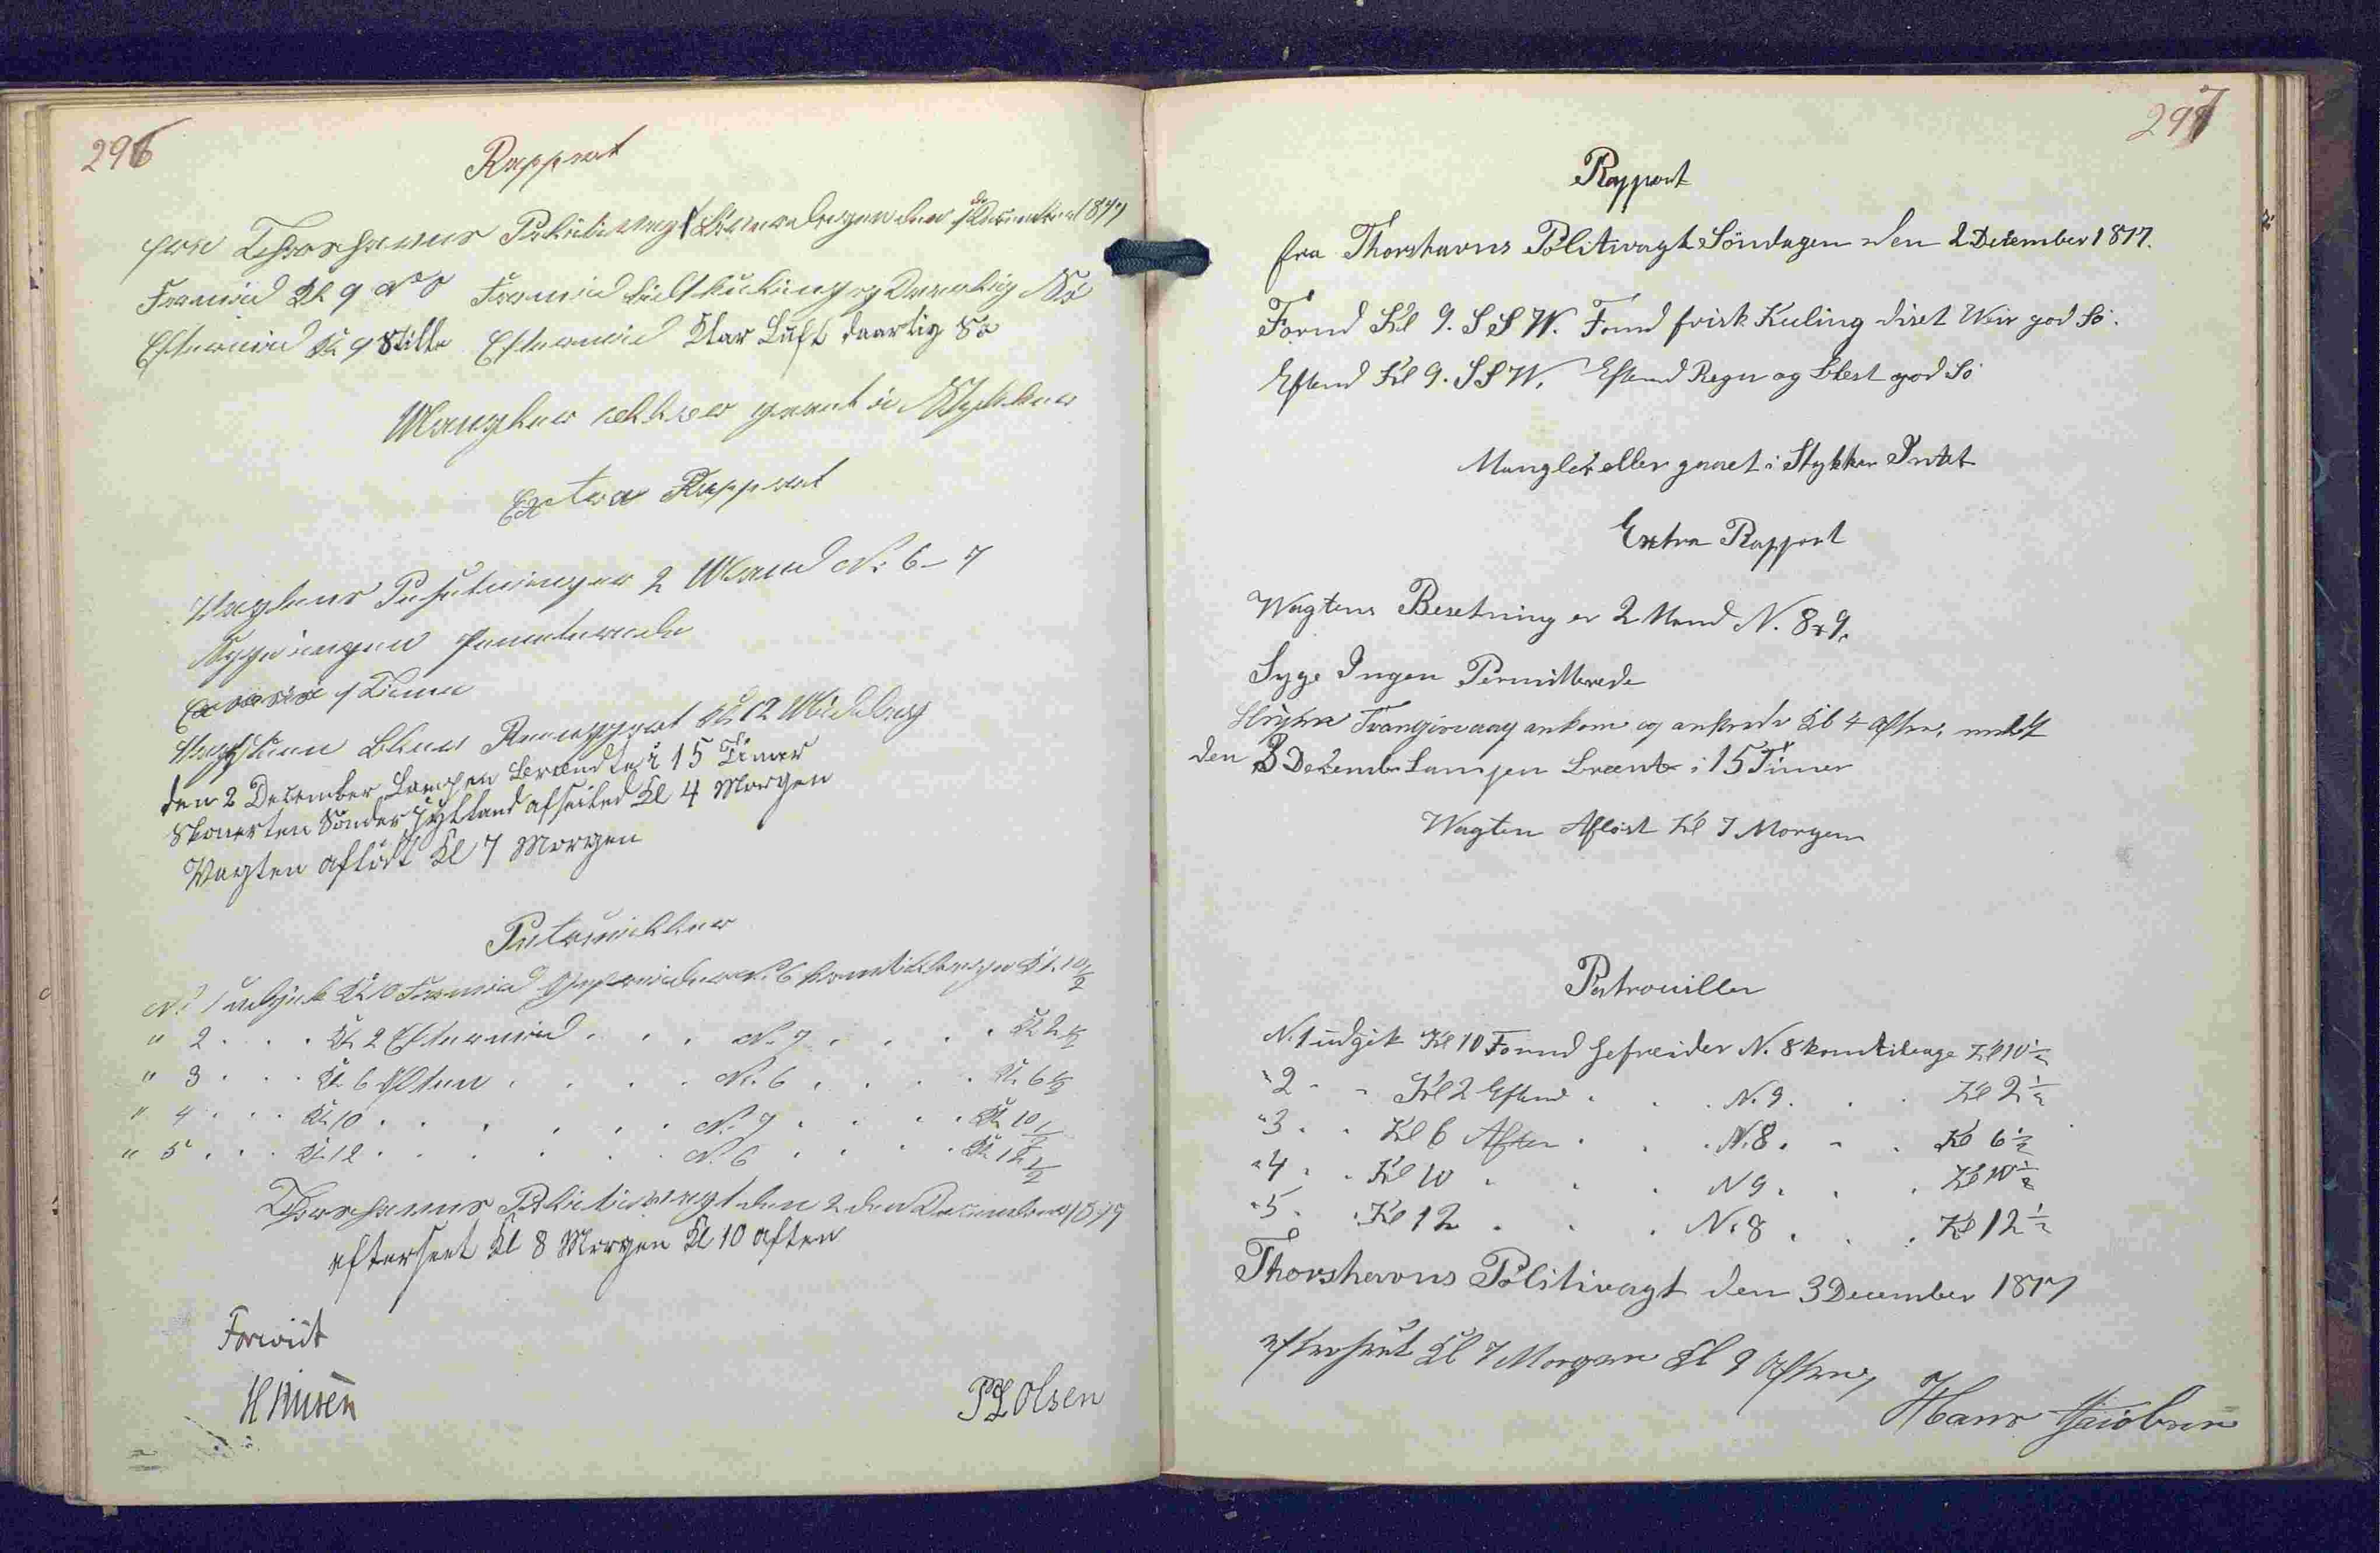 296
Rapport
fra Thorshavns Politivagt Löverdagen den 1 December 1877
Formid Kl 9 NO Formid lidt Kuling og Daarlig Sö
Eftermid Kl 9 Stille Eftermid Klar Luft daarlig Sö
Mangler eller gaaet i Stykker
Extra Rapport
Vagtens Besetninger 2 Mand N: 6-7
Syge ingen Permiterede
Exersis 1 Time
Kl 12 Middag
den 2 December Lampen Brændte i 15 Timer
Skonerten Sönder Jylland afseiled Kl 4 Morgen
Vagten aflöst Kl 7 Morgen
Patrouiller
N: 1 udgik Kl 10 Formid Gefreider N: 6 kom tilbage Kl. 10 1/2
" 2 . . . Kl 2 Eftermid . . . N. 7 . . . . Kl 2 1/2
" 3 . . . Kl 6 Aften . . . . N. 6 . . . . Kl 6 1/2
" 4 . . . Kl 10 . . . . . . N. 7 . . . . Kl 10 1/2
" 5 . . . Kl 12 . . . . . . N. 6 . . . . Kl 12 1/2
Thorshavns Politivagt den 2 den December 1877
efterseet Kl 8 Morgen Kl 10 aften
Forevist
PL Olsen
297
Rapport
fra Thorshavns Politivagt Söndagen den 2 December 1877.
Formd Kl 9. S S W. Formd frisk Kuling diset Veir god Sö.
Eftmd Kl 9. S S W. Eftmd Regn og Blest god Sö
Mangler eller gaaet i Stykker Intet
Extra Rapport
Wagtens Besetning er 2 Mand N. 8 & 9.
Syge Ingen Permitterede
Tvangiroaag ankom og ankrede Kl 4 Aften,
den 3 Decembr Lampen brænte i 15 Timer
Wagten Aflöst Kl 7 Morgen
Patrouiller
N. 1 udgik Kl 10 Formd Gefreider N. 8 kom tilbage Kl 10 1/2
" 2 - - Kl 2 Eftmd . . . N. 9. . . Kl 2 1/2
" 3 . . Kl 6 Aften . . . N. 8. - . Kl 6 1/2
" 4 . . Kl 10 . . . N 9. . . Kl 10 1/2
" 5. . Kl 12 . . . N. 8 . . . Kl 12 1/2
Thorshavns Politivagt den 3 December 1877
efterseet Kl 7 Morgen Kl 9 Aften
Hans Jacobsen